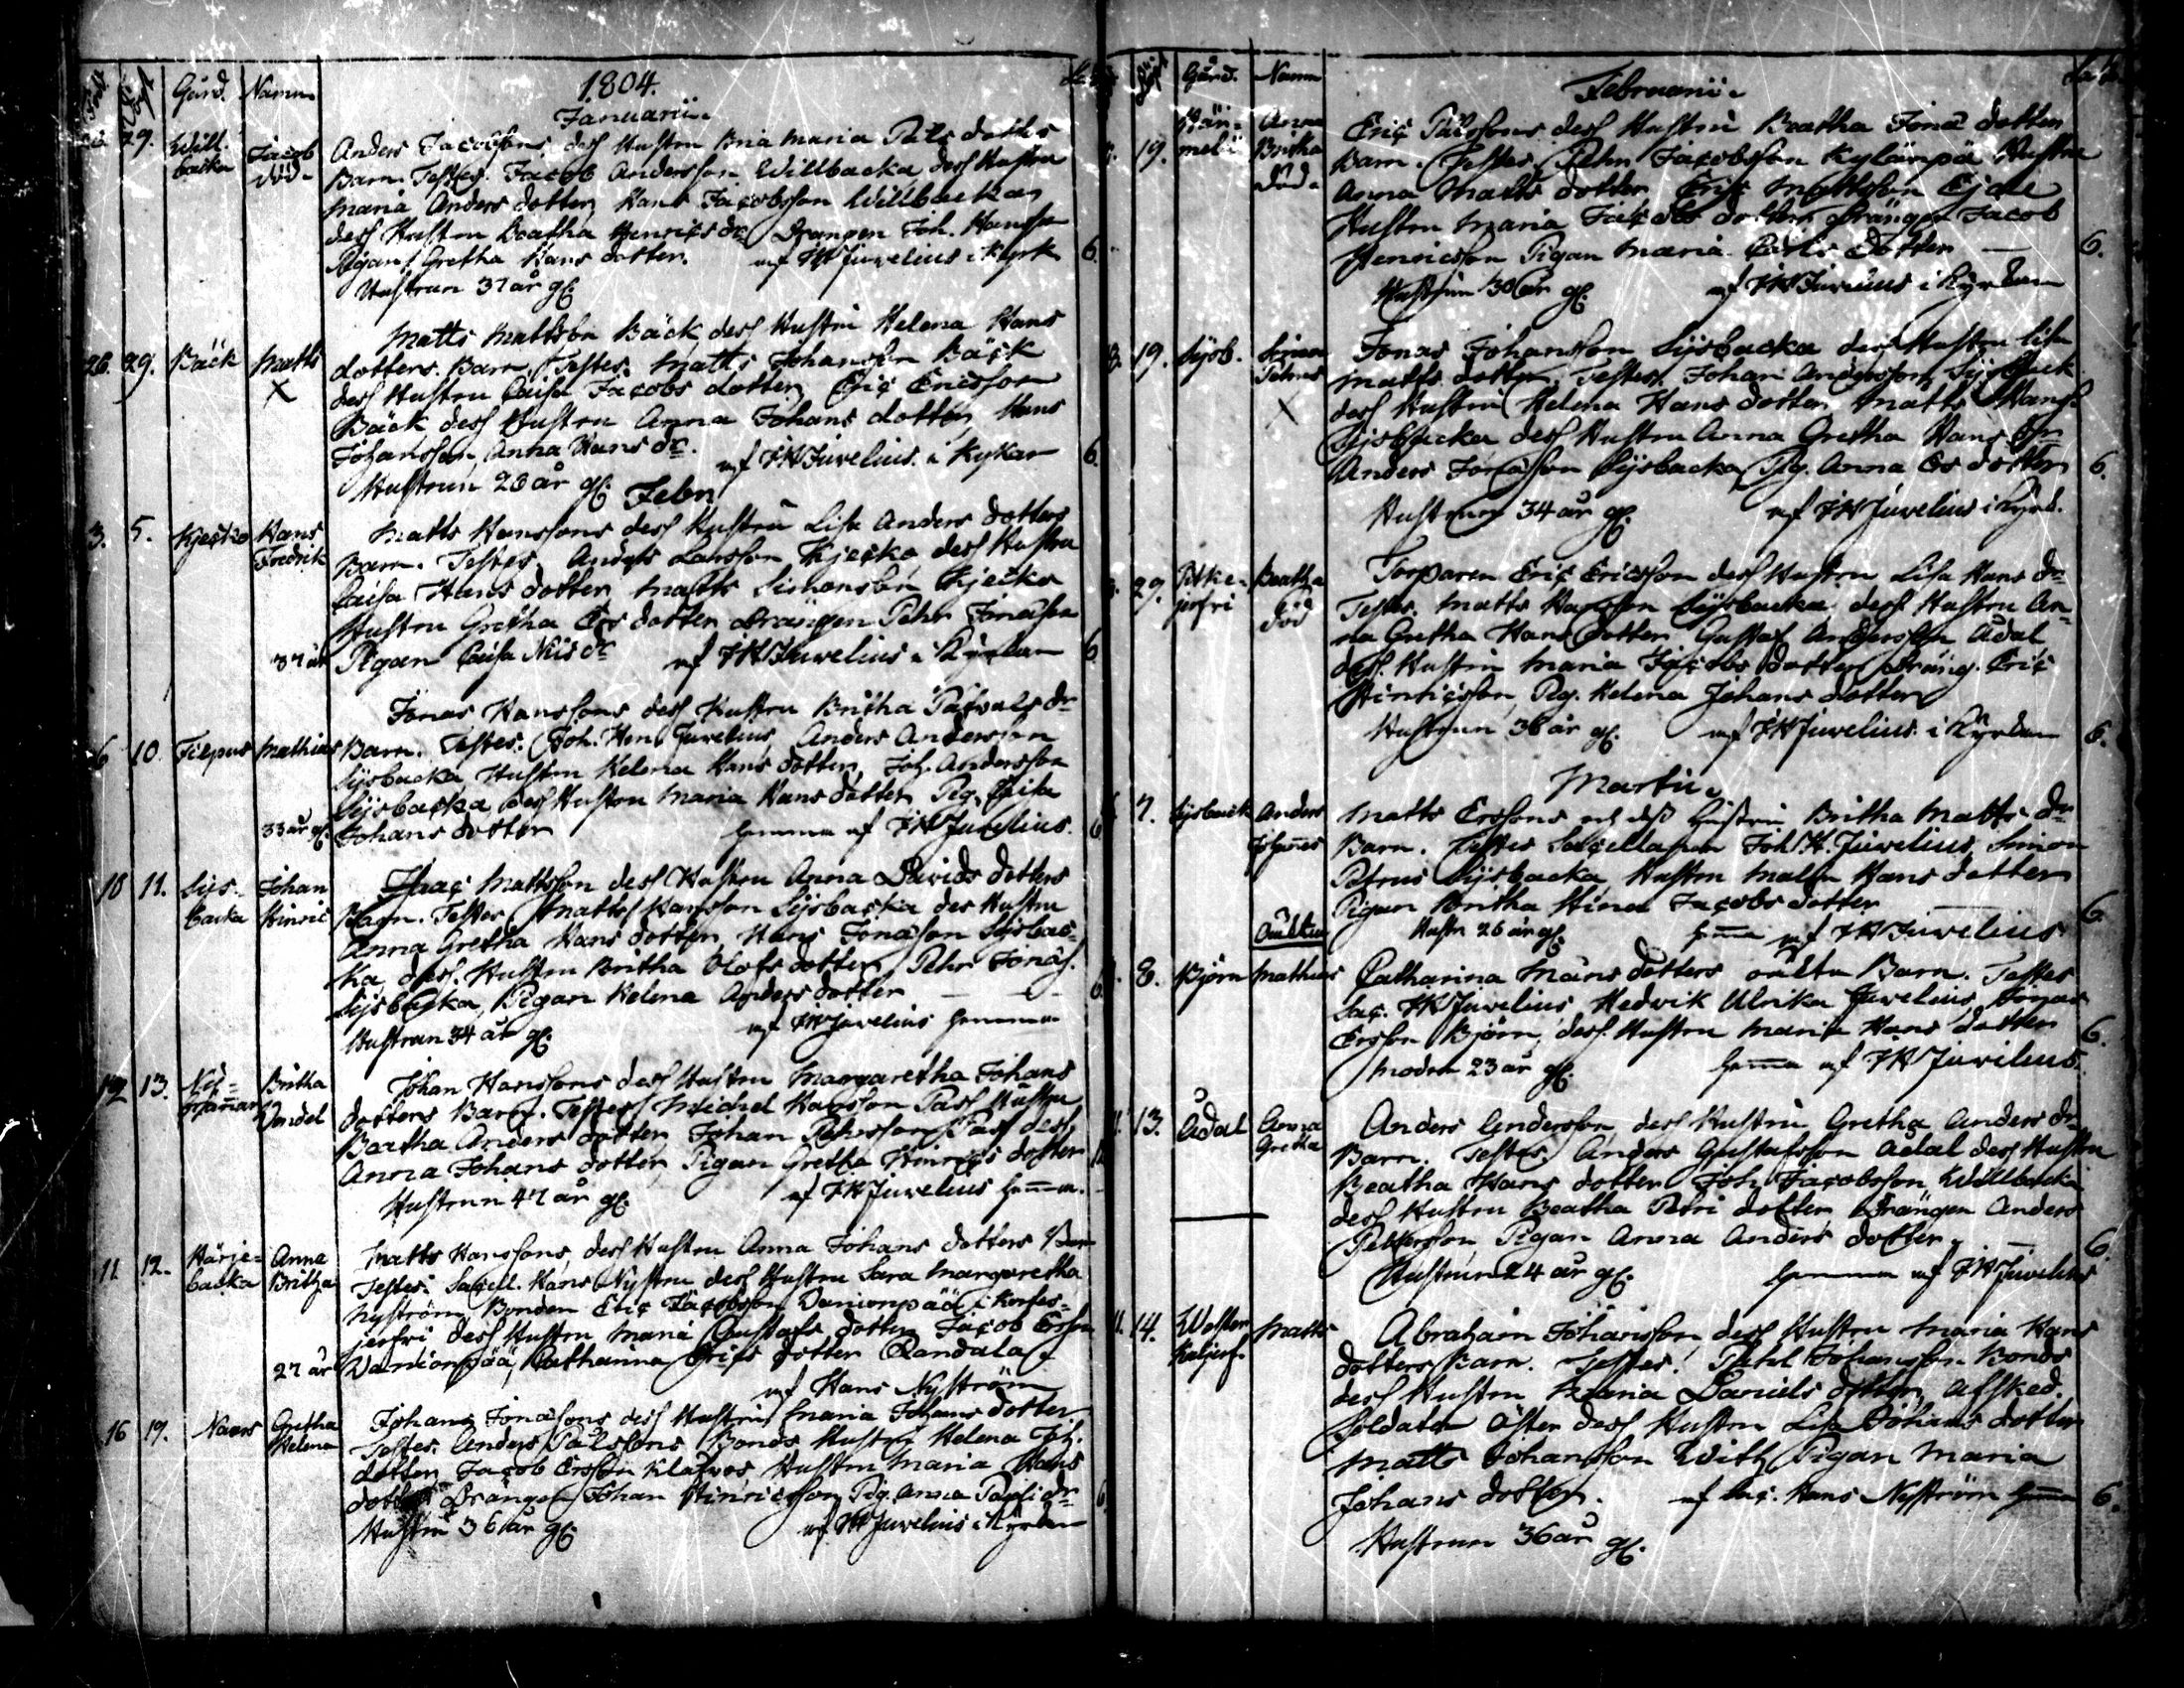 Gård. Namn
1804.
Januarii
29. Will-
backa
Jacob
död.
Anders Jacobsons dess Hustru Bria Maria Påls dotters
Barn. Testes. Jacob Andersson Willbacka dess Hustru
Maria Anders dotter, Hans Jacobsson Willbacka
dess Hustru Beatha Henrics dr Drängen Joh. Hansson
Pigan Gretha Hans dotter. af JH Juvelius i Kyrk 6.
Hustrun 37 år gl.
Matts Mattsson Bäck dess Hustru Helena Hans
26. 29. Bäck Matts
X
dotters Barn. Testes. Matts Johansson Bäck
dess Hustru Caisa Jacobs dotter, Eric Ericsson
Bäck dess Hustru Anna Johans dotter, Hans
Johansson, Anna Hans dr. af JH Juvelius i Kykan 6.
Hustrun 26 år gl.
Febr
3. 5. Kjecko Hans
Fredrik
Matts Hanssons dess Hustru Lisa Anders dotters
Barn. Testes. Anders Larsson Kjecko dess Hustru
Caisa Hans dotter, Matts Simonsson Kjecko
Hustru Gretha Ers dotter Drängen Pehr Jonasson
37 år Pigan Caisa Nils dr af JH Juvelius i Kyrkan 6
Jonas Hanssons dess Hustru Britha Påfvals dr
6 10. Filpus Mathias Barn. Testes. Joh. Hen. Juvelius, Anders Andersson
Sijsbacka, Hustru Helena Hans dotter, Joh. Andersson
Sijsbacka dess Hustru Maria Hans dotter Pig. Caisa
33 år gl. Johans dotter hemma af JH Juvelius. 6
10 11. Sijs-
backa
Johan
Hinric
Isaac Mattsson dess Hustru Anna Davids dotters
Barn. Testes Matts Hansson Sijsbacka des Hustru
Anna Gretha Hans dotter, Hans Jonasson Sijsbac-
ka, dess. Hustru Britha Olofs dotter, Pehr Jonass.
Sijsbacka, Pigan Helena Anders dotter 6.
Hustrun 34 år gl. af JH Juvelius hemma
12 13. Britha
Vendel
Johan Hanssons dess Hustru Margaretha Johans
dotters Barn. Testes Michel Hansson Pass Hustru
Beatha Anders dotter, Johan Pehrsson Pass dess
Anna Johans dotter, Pigan Gretha Hinrics dotter
Hustrun 47 år gl. af JH Juvelius hemma.
11 12. Härje-
backa
Anna
Britha
Matts Hanssons, dess Hustru Anna Johans dotters Barn
Testes: Sacell. Hans Nyström dess Hustru Sara Margaretha
Nyström Bonden Eric Jacobsson Vanionpää i Kortes-
jerfvi dess Hustru Maria Gustafs dotter, Jacob Ersson
27 år Vanionpää, Catharina Erics dotter Randala
af Hans Nyström
16 19. Naars Gretha
Helena
Johans Jonassons dess Hustru Maria Johans dotter
Testes. Anders Pålssons Bonds Hustru Helena Joh.
dotter, Jacob Ersson Klafvos, Hustru Maria Hans
dotter Drängen Johan Hinricsson, Pig. Anna Pauli dr
Hustru 36 år gl. af JH Juvelius i Kyrkan
Gård. Namn
Februarii
19. Anna
Britha
död.
Eric Pålssons dess Hustru Beatha Jona dotter
Barn. Testes Pehr Jacobsson Kylänpä Hustru
Anna Matts dotter Eric Mattsson
Hustru Maria Jacobs dotter, Drängen Jacob
Henricsson Pigan Maria Carls dotter 6.
Hustrun 30 år gl. af JH Juvelius i Kyrkan
19. Sijsb. Simon
Petrus
X
Jonas Johansson Sijsbacka dess Hustru Lisa
Matts dotter, Testes. Johan Andersson Sijsback
dess Hustru Helena Hans dotter, Matts Hanss.
Sijsbacka dess Hustru Anna Gretha Hans dr
Anders Jonasson Sijsbacka, Pig. Anna Ers dotter 6.
Hustrun 34 år gl. af JH Juvelius i Kyrk.
29. Pitke-
jerfvi
Beatha
död
Torparen Eric Ericsson dess Hustru Lisa Hans dr
Testes. Matts Hansson Sijsbacka dess Hustru An-
na Gretha Hans dotter, Gustaf Andersson Ådal
dess Hustru Maria Jacobs dotter, Dräng. Eric
Hinricsson, Pig. Helena Johans dotter
Hustrun 36 år gl. af JH Juvelius i Kyrkan 6.
Martii
7. Sijsback Anders
Johannes
Matts Erssons och dess Hustru Britha Matts dr
Barn. Testes Sacellanen Joh. H. Juvelius, Simon
Petrus Sijsbacka Hustru Malin Hans dotter
Pigan Britha Stina Jacobs dotter 6
Hustr 26 år gl. hemma af JH Juvelius
oäkta
8. Björn Mathias
Catharina Måns dotters oäkta Barn. Testes
Sac. JH Juvelius Hedvik Ulrika Juvelius, Jonas
Ersson Björn, dess Hustru Maria Hans dotter 6.
modren 23 år gl. hemma af JH Juvelius.
13. Ådal Anna
Gretha
Anders Andersson dess Hustru Gretha Anders dr
Barn. Testes. Anders Gustafsson Ådal dess Hustru
Beatha Hans dotter Joh. Jacobsson Willbacka
dess Hustru Beatha Petri dotter Drängen Anders
Pettersson Pigan Anna Anders dotter, 6
Hustrun 24 år gl. hemma af JH Juvelius
14. Wester
Matts
Abraham Johansson, dess Hustru Maria Hans
dotters Barn. Testes. Pehl Johansson Bonds
dess Hustru Maria Daniels dotter, afsked.
Soldaten Öster dess Hustru Lisa Johans dotter
Matts Johansson With Pigan Maria
Johans dotter. af Sac. Hans Nyström hemma 6.
Hustrun 36 år gl.